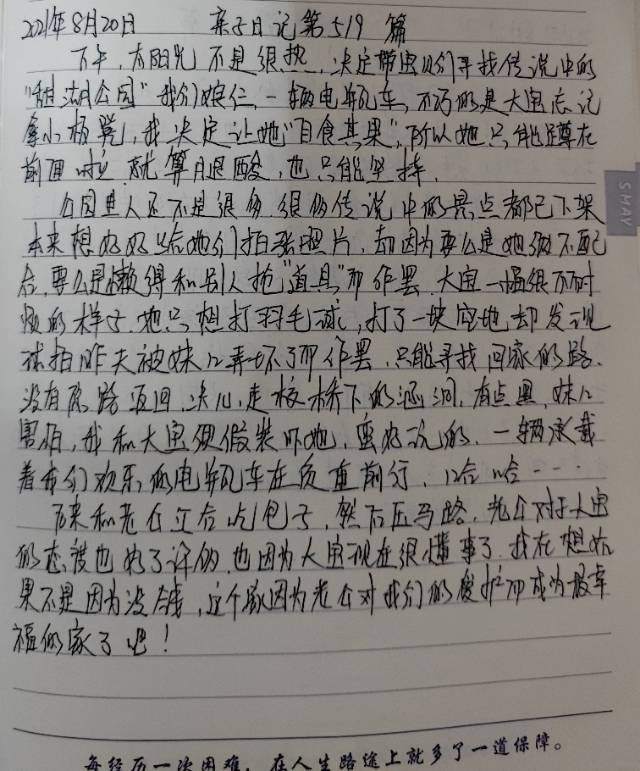 2021年8月20日 亲子日记第519篇
下午,太阳光不是很热,决定带宝贝们寻找传说中的
"甜湖公园"我们娘仨,一辆电瓶车,不巧的是大宝忘记
拿小板凳,我决定让她"自食其果",所以她只能蹲在
前面啦,就算腿酸,也只能坐择。
公园里人还不是很多,很多传说中的景点都已下架
本来想好好给她们拍张照片,却因为要么是她俩不配
合,要么是懒得和别人抢"道具"而作罢,大宝一幅很不耐
烦的样子,她只想打羽毛球,打了一块空地却发现
球拍昨天被妹儿弄坏了而作罢,只能寻找回家的路.
没有原路返回,决心走校桥下的涵洞,有点黑,妹儿
害怕,我和大宝便假装吓她,蛮好玩的,一辆承载
着我们欢乐的电瓶车在负重前行,哈哈…
后来和老公汇合吃包子,然后压马路,老公对于大宝
的态度也好了许多,也因为大宝现在很懂事了,我在想如
果不是因为没钱,这个家因为老公对我们的爱护而成为最幸
福的家了吧!
每经历一次困难,在人生路途上就多了一道保障。
SMAY